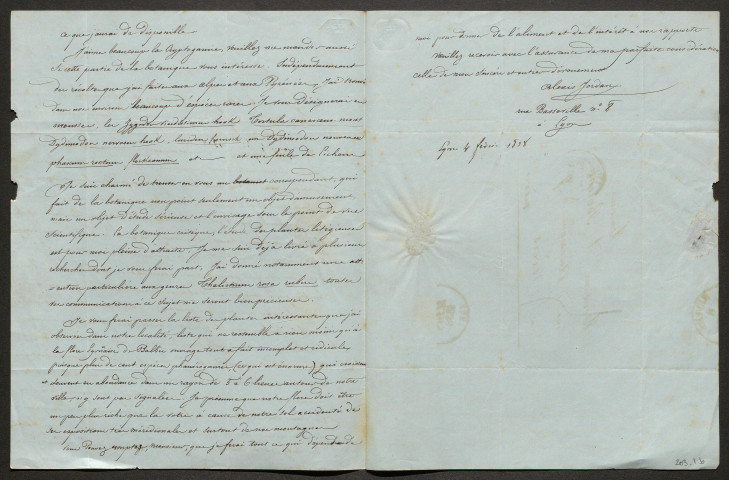 ce que j'aurai de disponible
J'aime beaucoup la Cryptogamie, veuillez me mander aussi
si cette partie de la botanique vous intéresse. Indépendamment
des récoltes que j'ai faites aux alpes et aux Pyrénées j'ai trouvé
dans nos environs beaucoup d'espèces rares. Je vous désignerai en
mousses, les hook Tortula
Dydimodon nervosum hook, un Dydimodon nouveau
phascum rectum et et une foule de Lichens
Je suis charmé de trouver en vous un botaniste correspondant, qui
fait de la botanique non point seulement un objet d'amusement,
mais un objet d'étude sérieuse et l'envisage sous le point de vue
scientifique. la botanique critique, l'étude des plantes litigieuses
est pour moi pleine d'attraits. Je me suis déjà livré à plusieurs
recherches dont je vous ferai part. J'ai donné notamment une att-
ention particulière aux genres Thalictrum rosa rubus toutes
vos communications à ce sujet me seront bien précieuses.
Je vous ferai passer la liste des plantes intéressantes que j'ai
observées dans notre localité, liste qui ne ressemble à rien moins qu'à
la flore lyonnaise de Balbis ouvrage tout à fait incomplet et ridicule
puisque plus de cent espèces phanérogames (ce qui est énorme) qui croissent
souvent en abondance dans un rayon de 5 à 6 lieues autour de notre
ville n'y sont pas signalées. Je présume que notre flore doit être
un peu plus riche que la votre à cause de notre sol accidenté de
ses expositions très méridionales et surtout de nos montagnes
Vous pouvez compter, monsieur, que je ferai tout ce qui dépendra de
moi pour donner de l'aliment et de l'intérêt à nos rapports
Veuillez recevoir avec l'assurance de ma parfaite considération
celle de mon sincère et entier dévouement
Alexis Jordan
rue Basseville n° 8
à Lyon
Lyon 4 février 1838